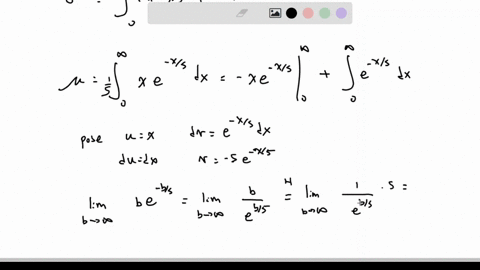 ∫₀
μ = 1/5 ∫₀^∞ x e^(-x/5) dx = -x e^(-x/5) |₀^∞ + ∫₀^∞ e^(-x/5) dx
pose u=x dv = e^(-x/5) dx
du=dx v = -5 e^(-x/5)
lim b→∞ b e^(-b/5) = lim b→∞ b / e^(b/5) =^H lim b→∞ 1 / e^(b/5) · 5 =